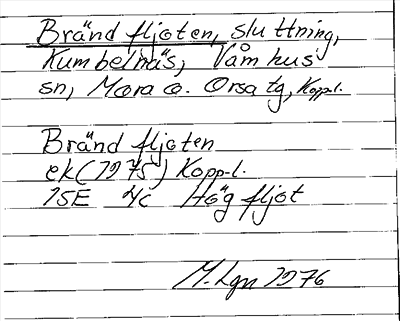 Bränd fljoten, sluttning,
Kumbelnäs, Våmhus
sn, Mora o. Orsa tg, Koppl.
Bränd fljoten
ek (1975) Koppl.
15E 4c Hög fljot
M. Lgn 1976